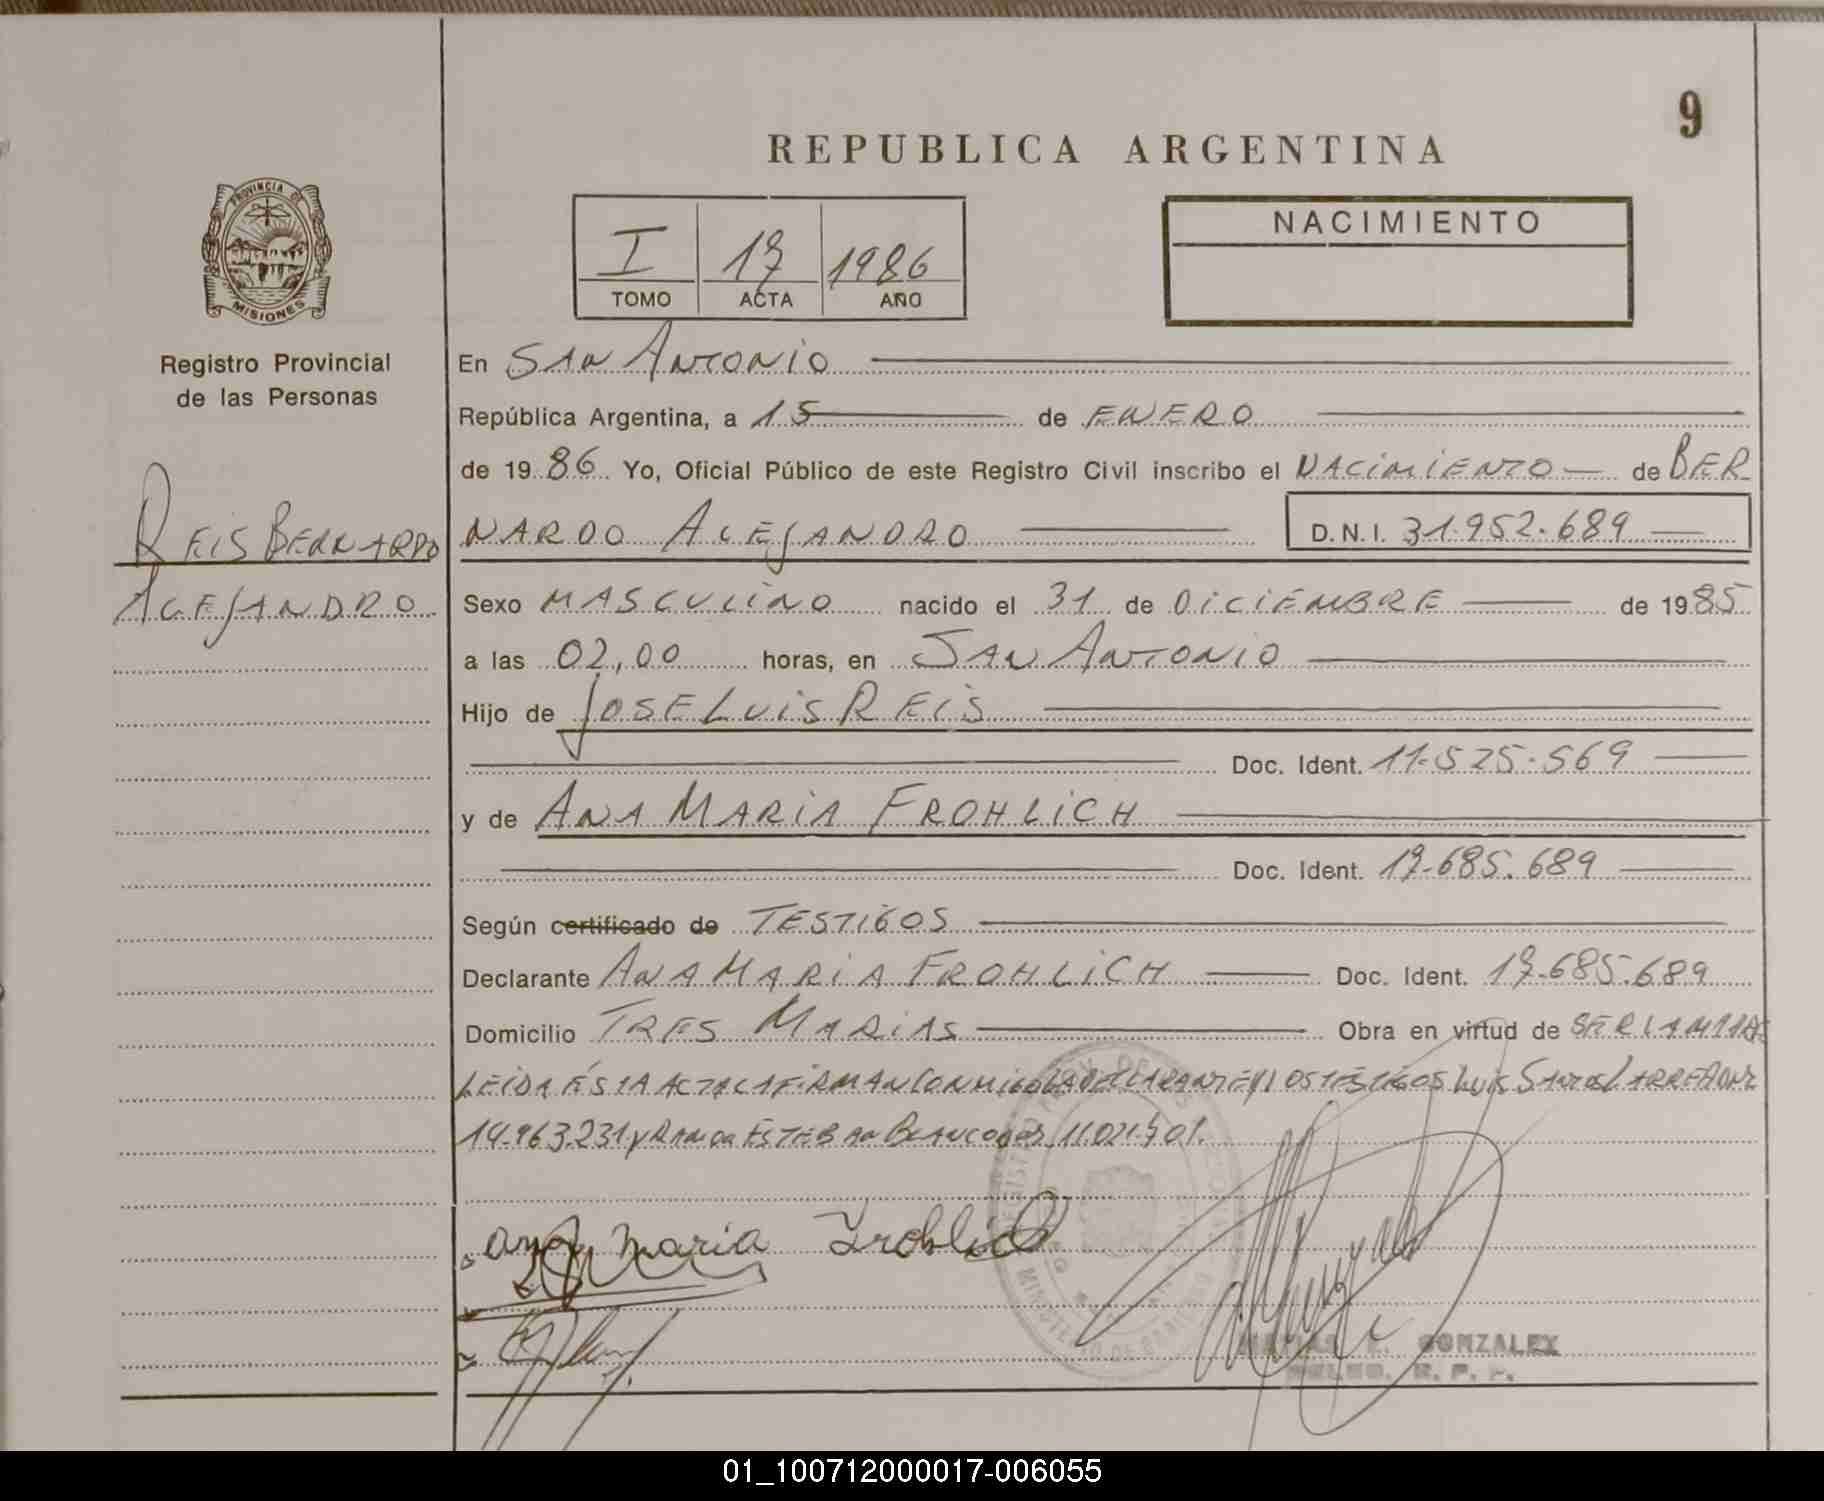 9
REPUBLICA ARGENTINA
PROVINCIA DE
MISIONES
I 17 1986
TOMO ACTA AÑO
NACIMIENTO
Registro Provincial
de las Personas
REIS BERNARDO
ALEJANDRO
En SAN ANTONIO
República Argentina, a 15 de ENERO
de 1986 Yo, Oficial Público de este Registro Civil inscribo el NACIMIENTO de BER
NARDO ALEJANDRO D.N.I. 31.952.689
Sexo MASCULINO nacido el 31 de DICIEMBRE de 1985
a las 02,00 horas, en SAN ANTONIO
Hijo de JOSE LUIS REIS
Doc. Ident. 11.525.569
y de ANA MARIA FROHLICH
Doc. Ident. 17.685.689
Según certificado de TESTIGOS
Declarante ANA MARIA FROHLICH Doc. Ident. 17.685.689
Domicilio TRES MARIAS Obra en virtud de SER LA MADRE
LEIDA ÉSTA ACTA LA FIRMAN CONMIGO LA DECLARANTE Y LOS TESTIGOS LUIS SANTOS
14.963.231 y ESTEBAN BLANCO 11.021.701.
Ana Maria Frohlich
GONZALEZ
R. P. P.
01_100712000017-006055